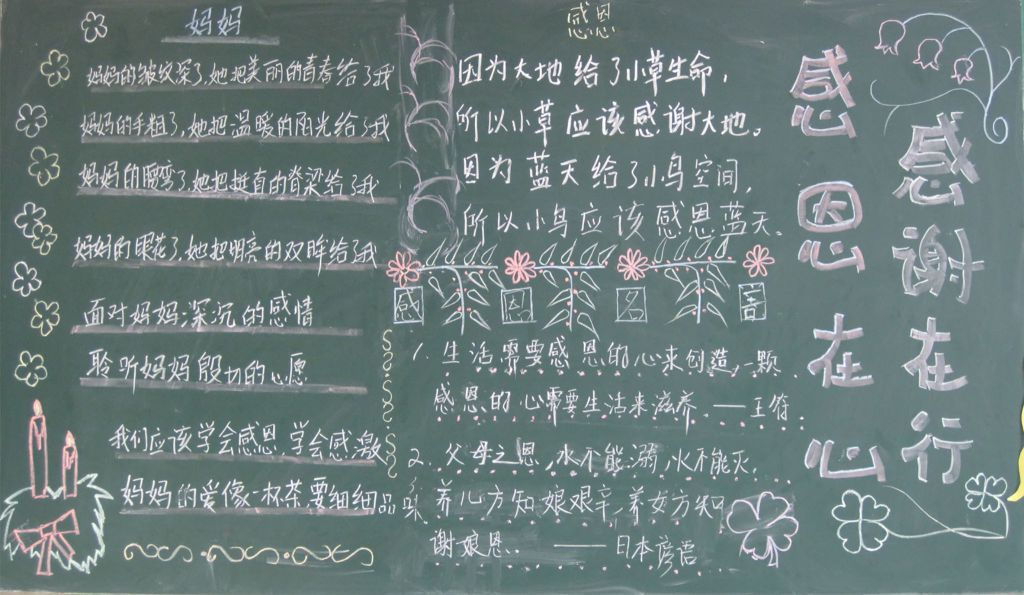 妈妈
妈妈的皱纹深了,她把美丽的青春给了我
妈妈的手粗了,她把温暖的阳光给了我
妈妈的腰弯了,她把挺直的脊梁给了我
妈妈的眼花了,她把明亮的双眸给了我
面对妈妈深沉的感情
聆听妈妈殷切的心愿
我们应该学会感恩,学会感激
妈妈的爱像一杯茶要细细品味
感恩
因为大地给了小草生命,
所以小草应该感谢大地。
因为蓝天给了小鸟空间,
所以小鸟应该感恩蓝天。
感恩名言
1.生活需要感恩的心来创造,一颗
感恩的心需要生活来滋养.——王符.
2.父母之恩,水不能溺,火不能灭.
养儿方知娘艰辛,养女方知
谢娘恩.——日本谚语
感恩在心
感谢在行